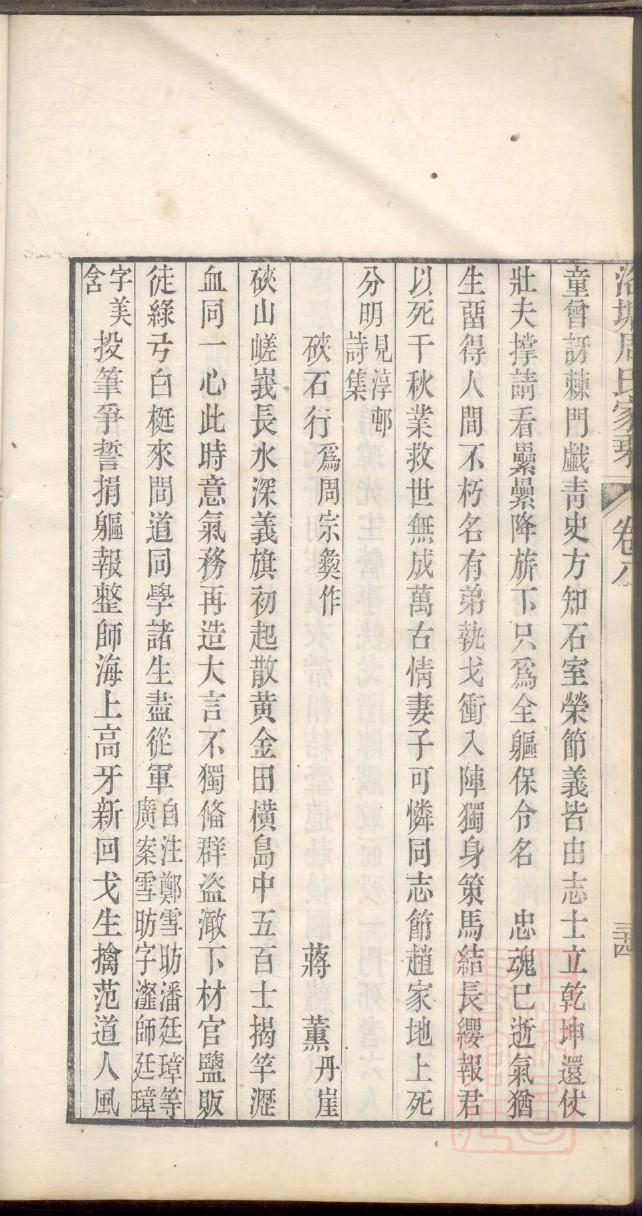 洛塘周氏家乘
卷八
童曾訝棘門戲靑史方知石室榮節義皆由志士立乾坤還仗
壯夫撑請看纍纍降旂下只爲全軀保令名　忠魂已逝氣猶
生畱得人間不朽名有弟執戈衝入陣獨身策馬結長纓報君
以死千秋業救世無成萬古情妻子可憐同志節趙家地上死
分明見淳邨詩集
硤石行爲周宗彝作　蔣薰丹崖
硤山嵯峩長水深義旗初起散黃金田橫島中五百士揭竿瀝
血同一心此時意氣務再造大言不獨俻群盜澉下材官鹽販
徒綠弓白梃來間道同學諸生盡從軍自注鄭雪昉潘廷璋等廣案雪昉字瀣師廷璋
字美含投筆爭誓捐軀報整師海上高牙新回戈生擒范道人風